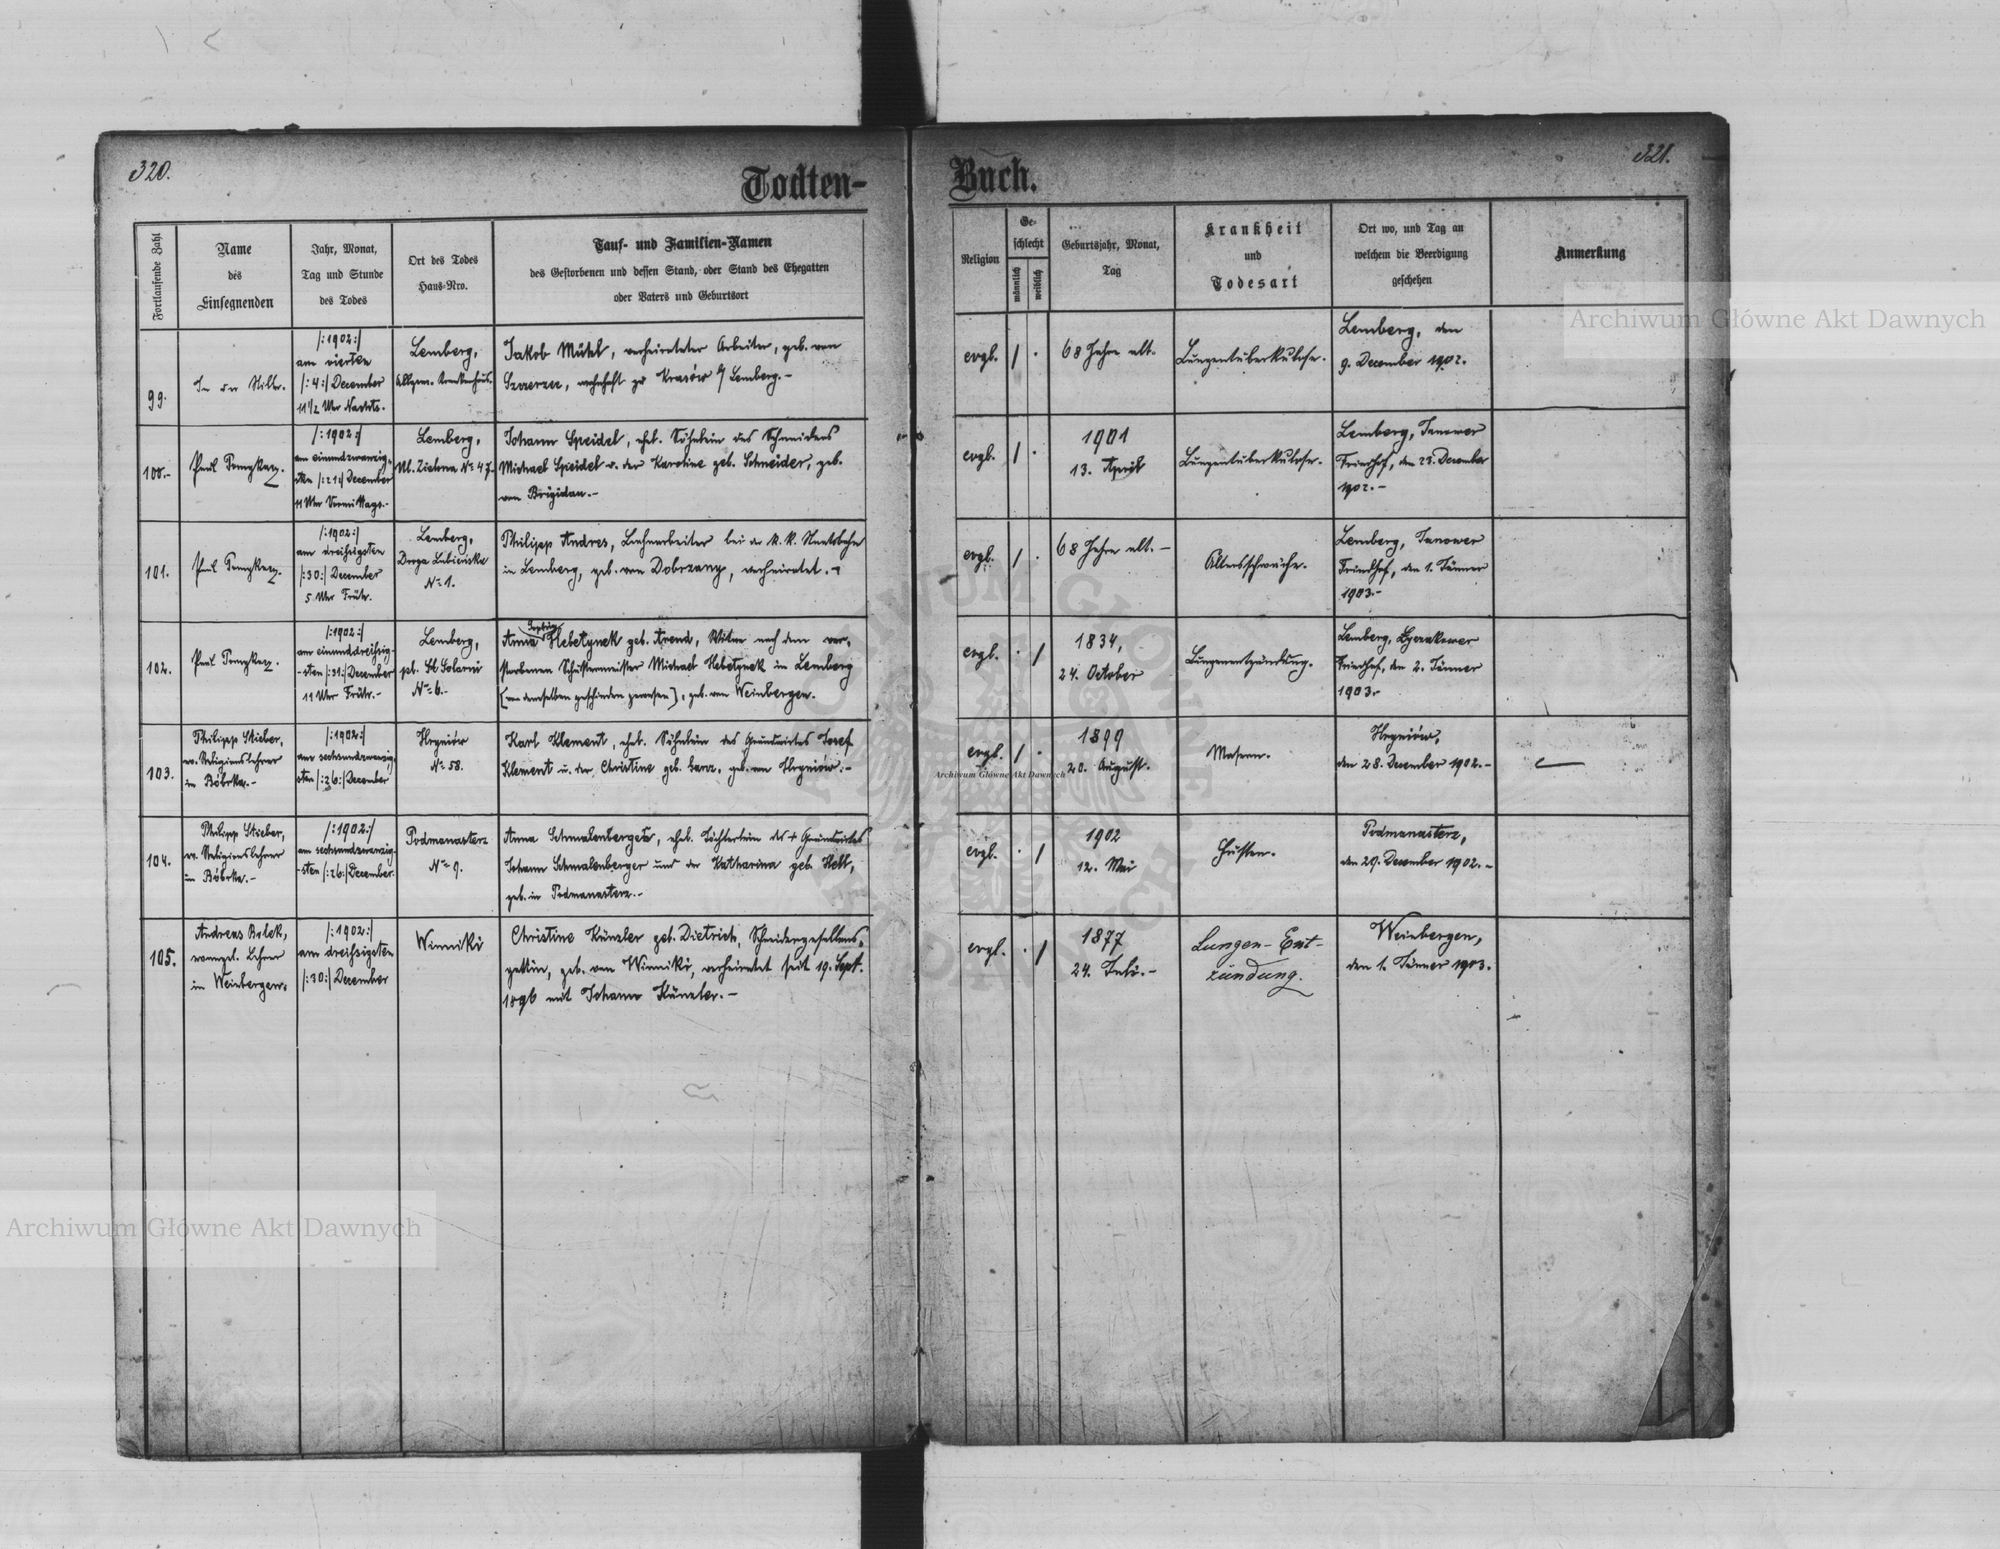 320.
Todten-
Fortlaufende Zahl
Name
des
Einsegnenden
Jahr, Monat,
Tag und Stunde
des Todes
Ort des Todes
Haus-Nro.
Tauf- und Familien-Namen
des Gestorbenen und dessen Stand, oder Stand des Ehegatten
oder Vaters und Geburtsort
99.
In der Stille.
/:1902:/
am vierten
/:4:/ December
11 1/2 Uhr Nachts.
Lemberg,
Allgem. Krankenhaus.
Jakob Mühl, verheirateter Arbeiter, geb. von
Szczerzec, wohnhaft zu Krasów b/ Lemberg.-
100.-
Paul
/:1902:/
am einundzwanzig-
sten /:21:/ December
11 Uhr Vormittags.-
Lemberg,
Ul. Zielona No 47.
Johann Speidel, ehel. Söhnlein des Schneiders
Michael Speidel u. der Karoline geb. Schneider, geb.
von Brigidau.-
101.
Paul
/:1902:/
am dreissigsten
/:30:/ December
5 Uhr Früh.
Lemberg,
Droga Lubieńska
No 1.
Philipp Andres, Bahnarbeiter bei der k.k. Staatsbahn
in Lemberg, geb. von Dobrzany, verheiratet.-
102.
Paul
/:1902:/
am einunddreissig-
-sten /:31:/ December
11 Uhr Früh.-
Lemberg,
No 6.-
Anna Hebetynek geb. Arend, Witwe nach dem ver-
storbenen Schustermeister Michael Hebetynek in Lemberg
(von demselben geschieden gewesen), geb. von Weinbergen.
103.
Philipp Stieber,
ev. Religionslehrer
in Bóbrka.-
/:1902:/
am sechsundzwanzig-
sten /:26:/ December
Hryniów
No 58.
Karl Klement, ehel. Söhnlein des Grundwirtes Josef
Klement u. der Christine geb. Lanz, geb. von Hryniów.-
104.
Philipp Stieber,
ev. Religionslehrer
in Bóbrka.-
/:1902:/
am sechsundzwanzig-
-sten /:26:/ December.
Podmanasterz
No 9.
Anna Schmalenberger, ehel. Töchterlein des + Grundwirtes
Johann Schmalenberger und der Katharina geb. Hell,
geb. in Podmanasterz.-
105.
Andreas Bolek,
evangel. Lehrer
in Weinbergen.
/:1902:/
am dreissigsten
/:30:/ December
Winniki
Christine Künzler geb. Dietrich, Schneidergesellens-
gattin, geb. von Winniki, verheiratet seit 19. Sept.
1896 mit Johann Künzler.-
Buch.
321.
Religion
Ge-
schlecht
männlich
weiblich
Geburtsjahr, Monat,
Tag
Krankheit
und
Todesart
Ort wo, und Tag an
welchem die Beerdigung
geschehen
Anmerkung
evgl.
68 Jahre alt.
Lungentuberkulose.
Lemberg, den
9. December 1902.
evgl.
1901
13. April
Lungentuberkulose.
Lemberg, Janower
Friedhof, den 23. December
1902.-
evgl.
68 Jahre alt.-
Altersschwäche.
Lemberg, Janower
Friedhof, den 1. Jänner
1903.-
evgl.
1834,
24. October
Lungenentzündung.
Lemberg, Lyczakower
Friedhof, den 2. Jänner
1903.-
evgl.
1899
20. August.
Masern.
Hryniów,
den 28. December 1902.-
evgl.
1902
12. Mai
Husten.
Podmanasterz,
den 29. December 1902.-
evgl.
1877
24. Juli.-
Lungen-Ent-
zündung.
Weinbergen,
den 1. Jänner 1903.
Archiwum Główne Akt Dawnych
Archiwum Główne Akt Dawnych
Archiwum Główne Akt Dawnych